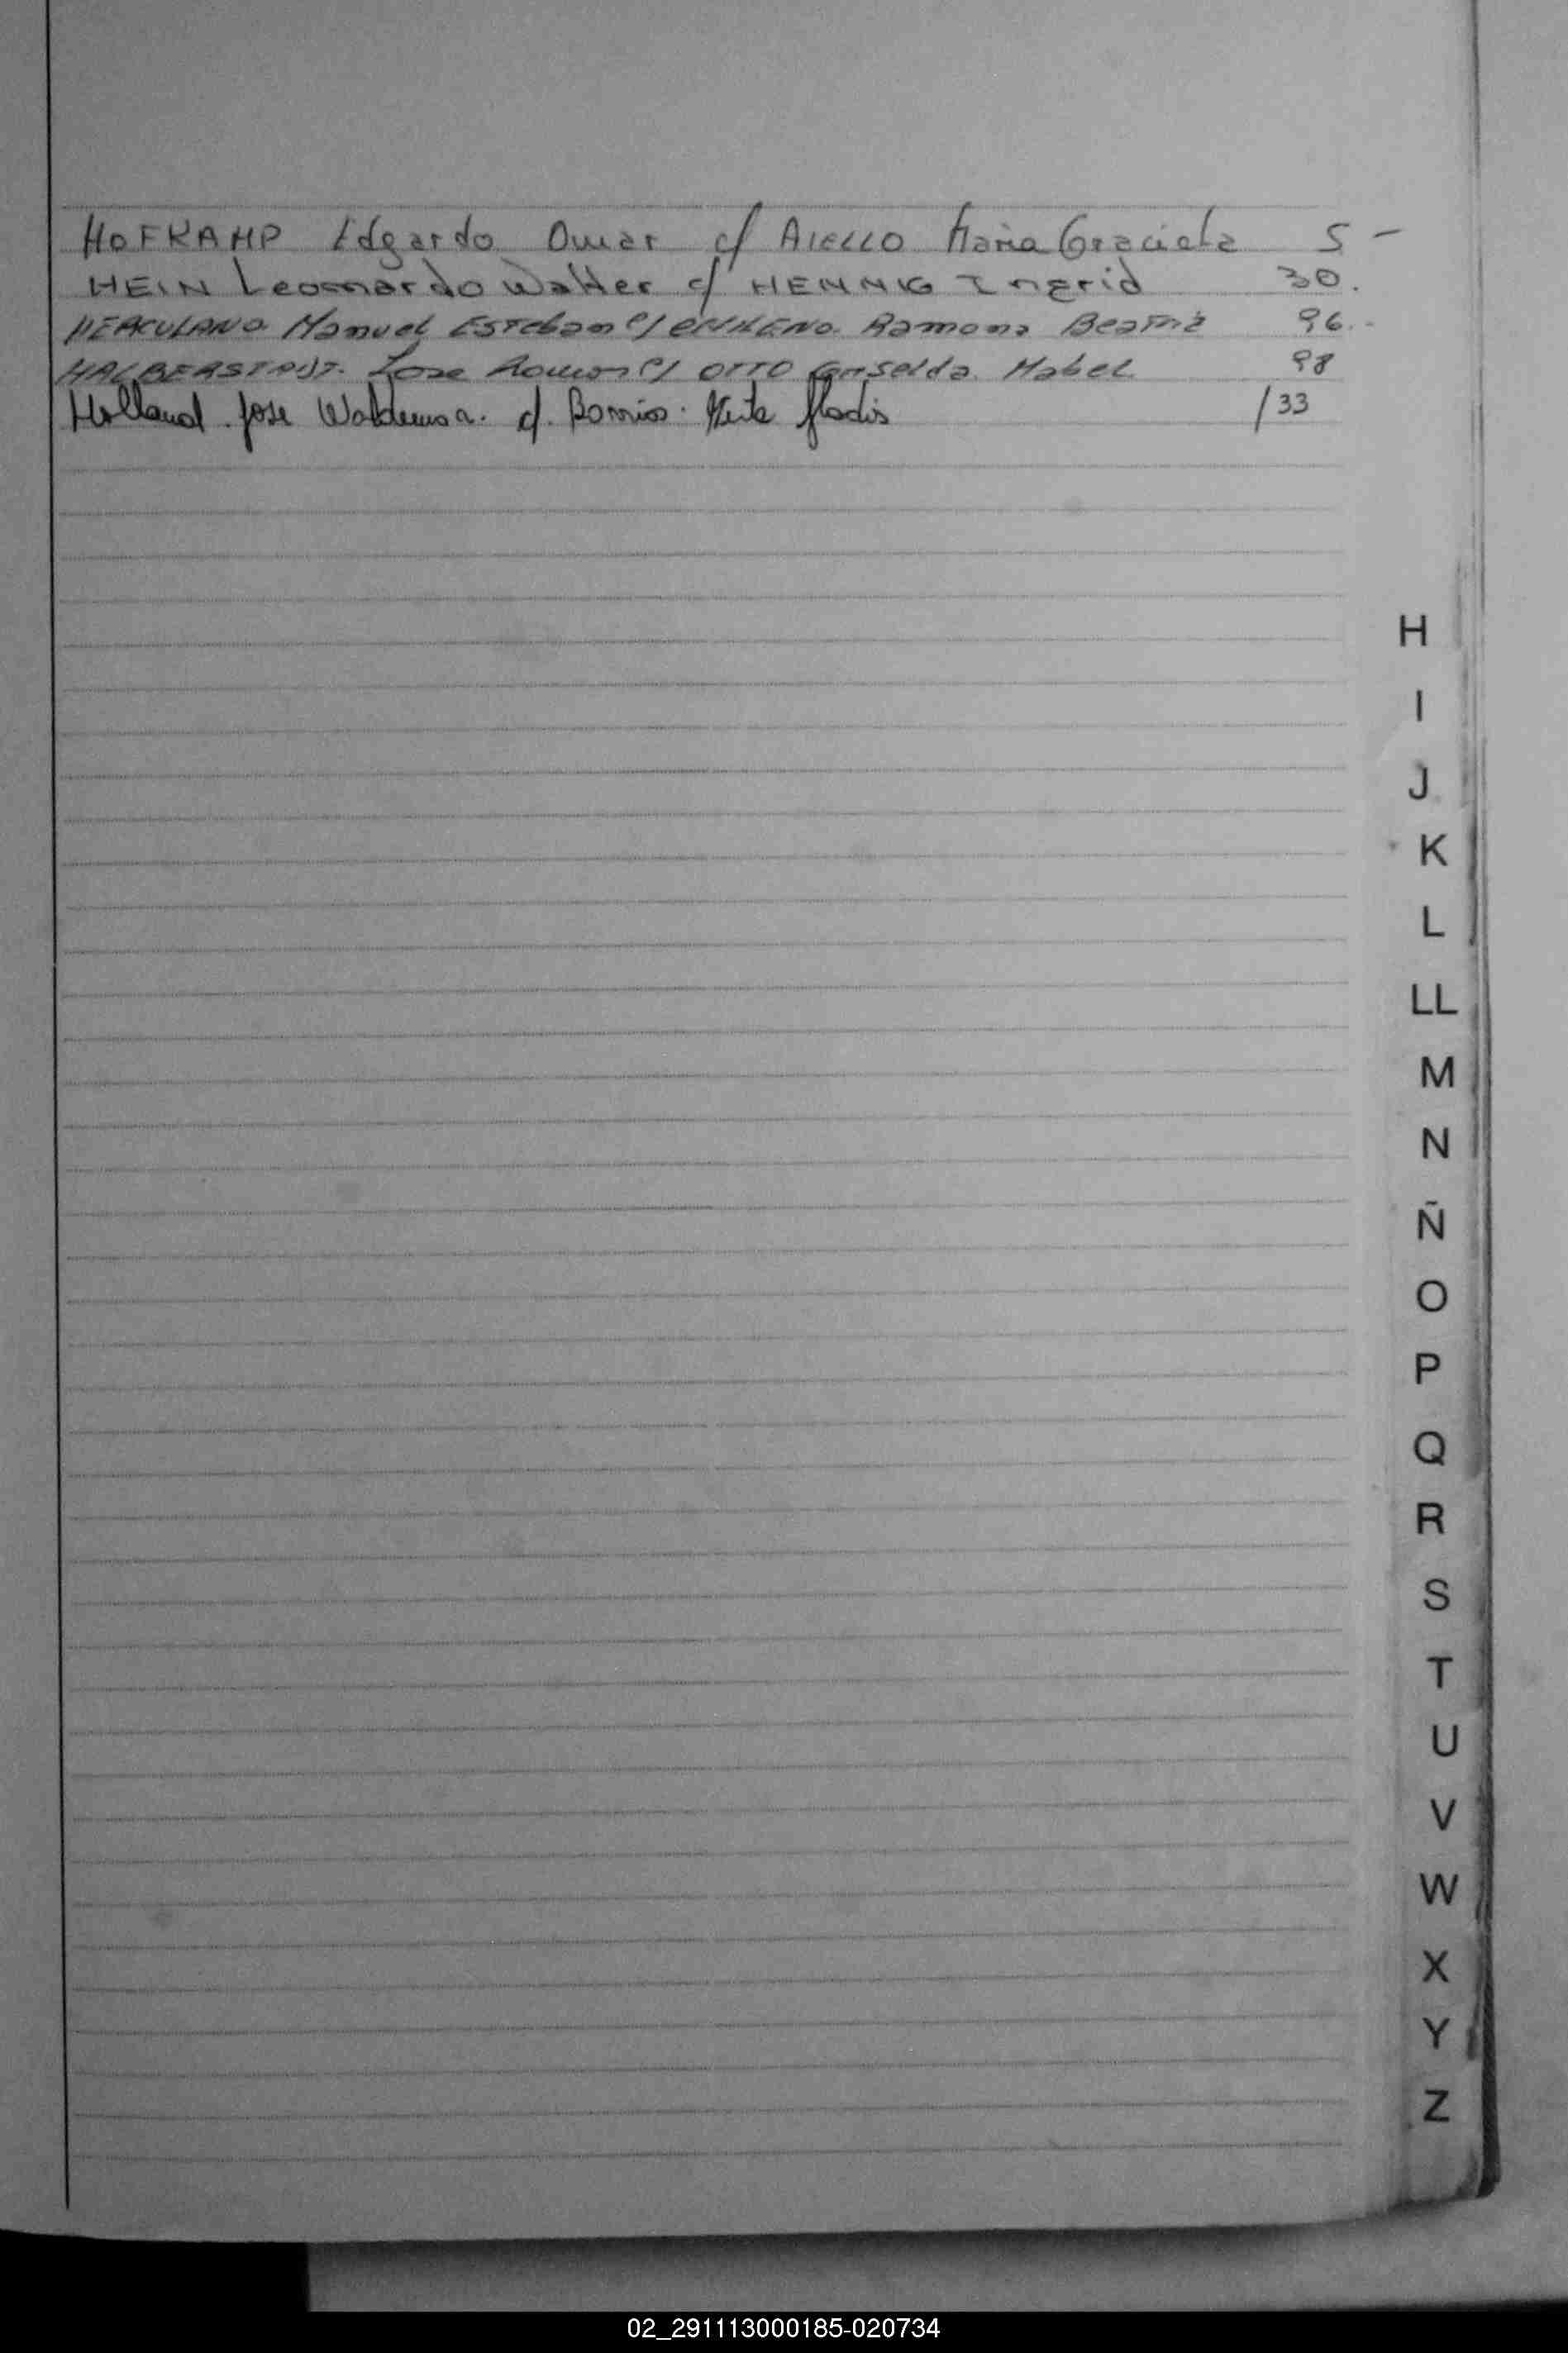 HOFKAMP Edgardo Omar c/ AIELLO Maria Graciela 5 -
HEIN Leonardo Walter c/ HENNIG Ingrid 30.
HERCULANO. Manuel Esteban c/ Ramona Beatriz 96.-
HALBERSTADT. Jose Ramon c/ OTTO Griselda. Mabel 98
Holland. Jose Waldemar. c/. Barrios. 133
H
I
J
K
L
LL
M
N
Ñ
O
P
Q
R
S
T
U
V
W
X
Y
Z
02_291113000185-020734